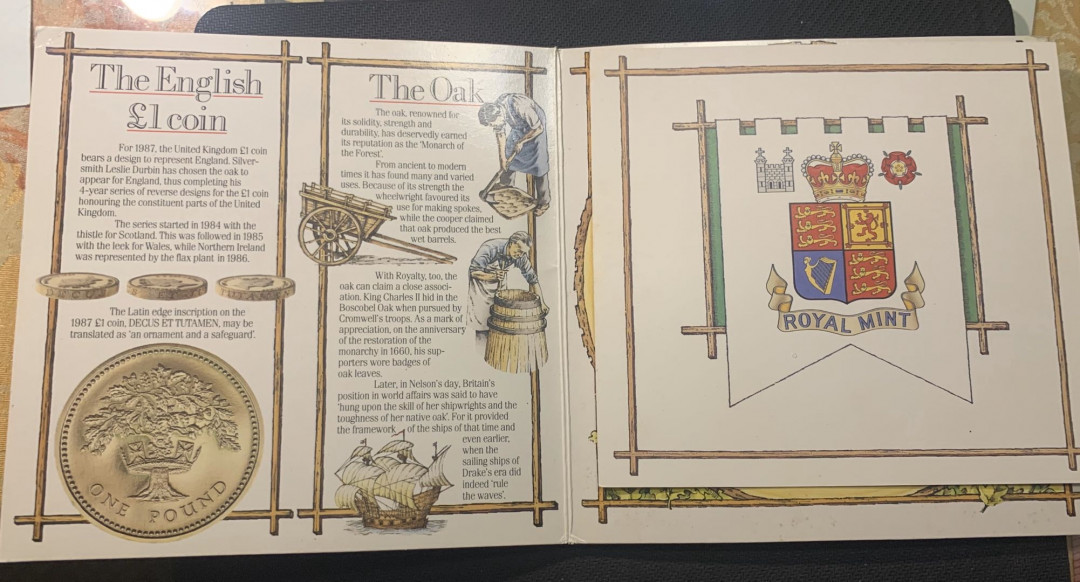 The English
£1 coin
For 1987, the United Kingdom £1 coin
bears a design to represent England. Silver-
smith Leslie Durbin has chosen the oak to
appear for England, thus completing his
4-year series of reverse designs for the £1 coin
honouring the constituent parts of the United
Kingdom.
The series started in 1984 with the
thistle for Scotland. This was followed in 1985
with the leek for Wales, while Northern Ireland
was represented by the flax plant in 1986.
The Latin edge inscription on the
1987 £1 coin, DECUS ET TUTAMEN, may be
translated as 'an ornament and a safeguard'.
ONE POUND
The Oak
The oak, renowned for
its solidity, strength and
durability, has deservedly earned
its reputation as the 'Monarch of
the Forest'.
From ancient to modern
times it has found many and varied
uses. Because of its strength the
wheelwright favoured its
use for making spokes,
while the cooper claimed
that oak produced the best
wet barrels.
With Royalty, too, the
oak can claim a close associ-
ation. King Charles II hid in the
Boscobel Oak when pursued by
Cromwell's troops. As a mark of
appreciation, on the anniversary
of the restoration of the
monarchy in 1660, his sup-
porters wore badges of
oak leaves.
Later, in Nelson's day, Britain's
position in world affairs was said to have
'hung upon the skill of her shipwrights and the
toughness of her native oak'. For it provided
the framework of the ships of that time and
even earlier,
when the
sailing ships of
Drake's era did
indeed 'rule
the waves'.
ROYAL MINT